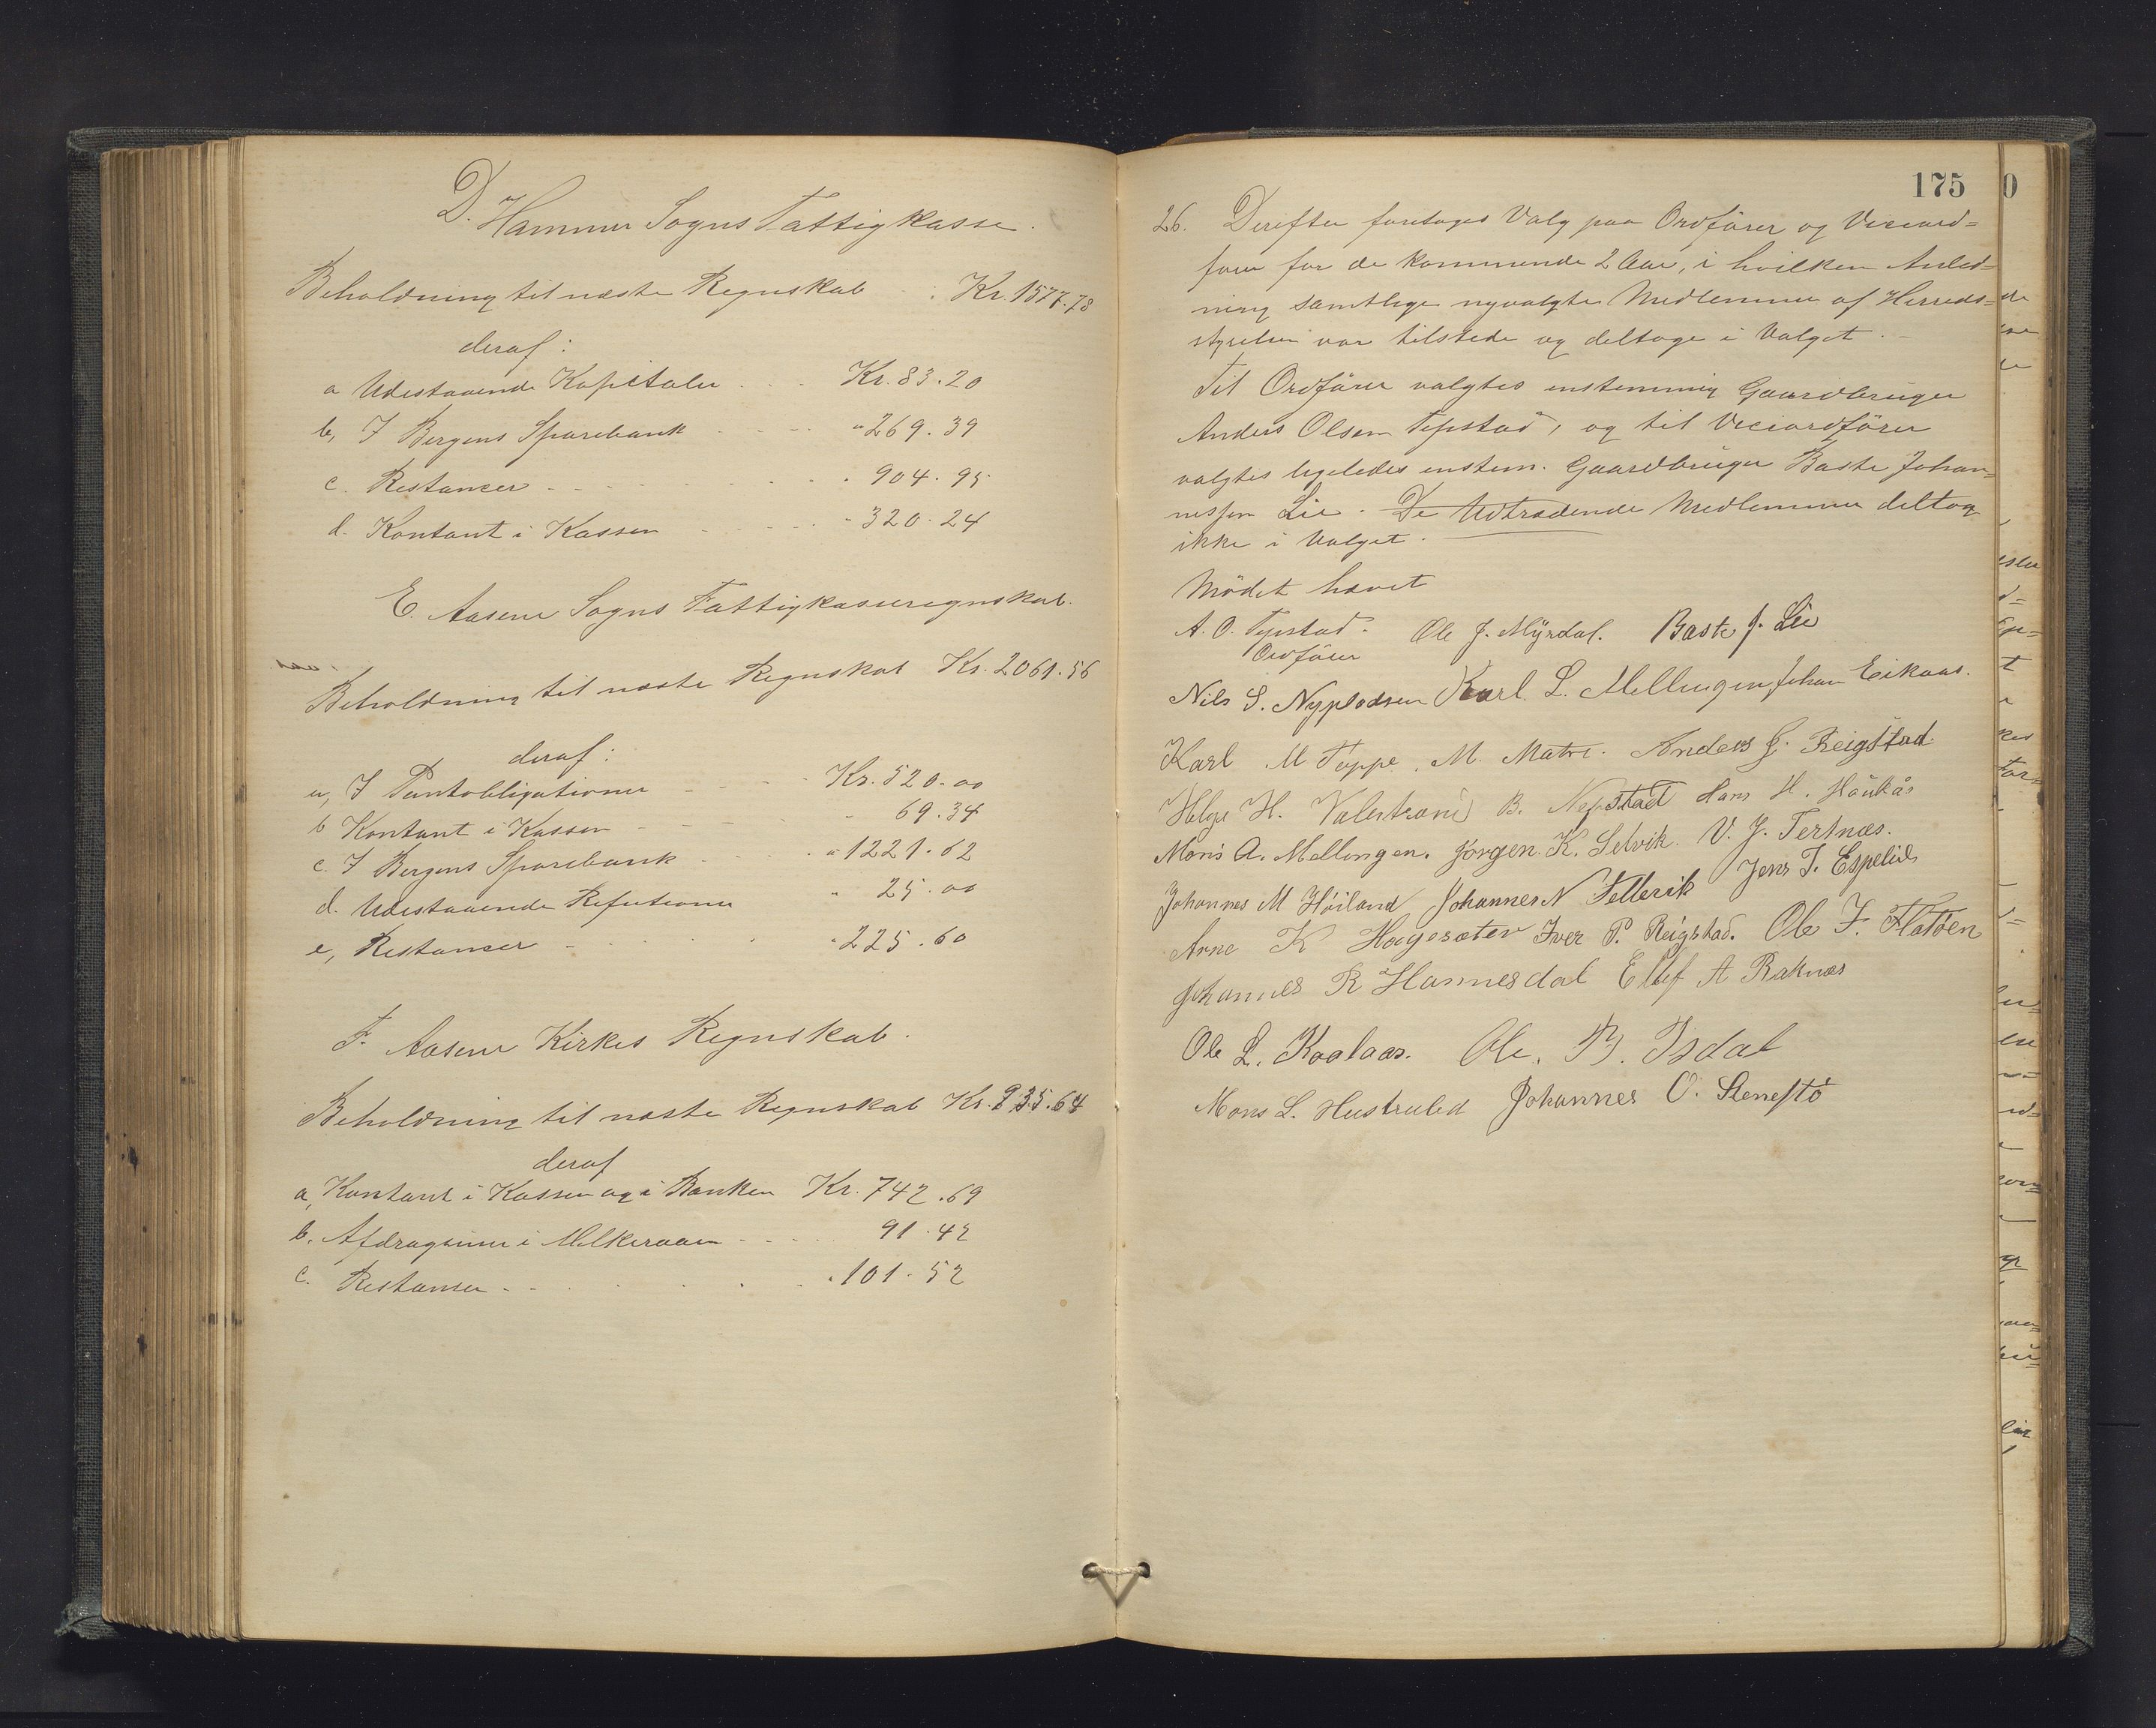 D. Hammer Sogns Fattigkasse.
Beholdning til næste Regnskab . Kr. 1577.78
deraf:
a Udestaaende Kapitaler . . . Kr. 83.20
b, I Bergens Sparebank - - - - " 269.39
c. Restancer - - - - - - - . 904.95
d. Kontant i Kassen - - - - - 320.24
E. Aasene Sogns Fattigkasseregnskab.
Beholdning til næste Regnskab Kr. 2061.56
deraf:
a, I Pantobligationer - - - - Kr. 520.00
b Kontant i Kassen - - - - - - 69.34
c. I Bergens Sparebank - - - " 1221.62
d. Udestaaende Refusioner " 25.00
e, Restancer - - - - - - " 225.60
F. Aasene Kirkes Regnskab.
Beholdning til næste Regnskab Kr. 935.64
deraf
a, Kontant i Kassen og i Banken Kr. 742.69
b. Afdragene i Melkeraaen - - - - 91.42
c. Restanser - - . . . . . 101.52
175
26. Derefter foretoges Valg paa Ordfører og Viceord=
fører for de kommende 2 Aar, i hvilken Anled=
ning samtlige nyvalgte Medlemmer af Herreds=
styrelsen var tilstede og deltoge i Valget. -
Til Ordfører valgtes enstemmig Gaardbruger
Anders Olsen Tepstad, og til Viceordfører
valgtes ligeledes enstem. Gaardbruger Baste Johan=
nessen Lie. De Udtrædende Medlemmer deltog
ikke i Valget.
Mödet hævet
A. O. Tepstad. Ole J. Myrdal. Baste J. Lie
Ordfører
Nils S. Nyplodsen Karl L. Mellingen Johan Eikaas.
Karl M Toppe. M. Matre. Anders J. Reigstad.
Helge H. Valestrand B. Nepstad Hans H. Haukås
Mons A. Mellingen. Jørgen. K. Selvik. V. J. Tertnæs.
Johannes M Höiland Johannes N Tellevik Jens T. Espelid
Arne K Hagesæter Iver P. Reigstad. Ole J. Flatöen
Johannes R Hannesdal Ellef A Raknæs
Ole L. Kaalaas. Ole. B. Isdal
Mons L. Hustruled Johannes O. Stenestö